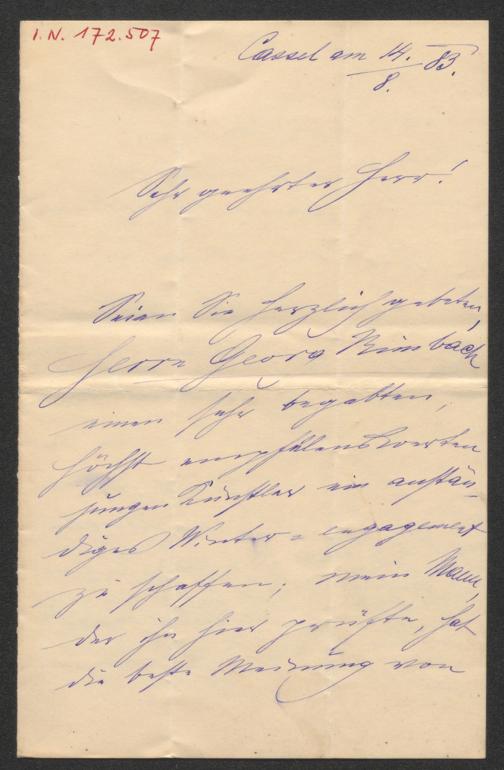 I.N. 172.507
Cassel am 14./8. 83.
Sehr geehrter Herr!
Seien Sie herzlich gebeten,
Herrn Georg Rimbach
einen sehr begabten,
höchst empfälenswerten
jungen Künstler ein anstän-
diges Winter=engagement
zu schaffen; mein Mann,
der ihn hier prüfte, hat
die beste Meinung von